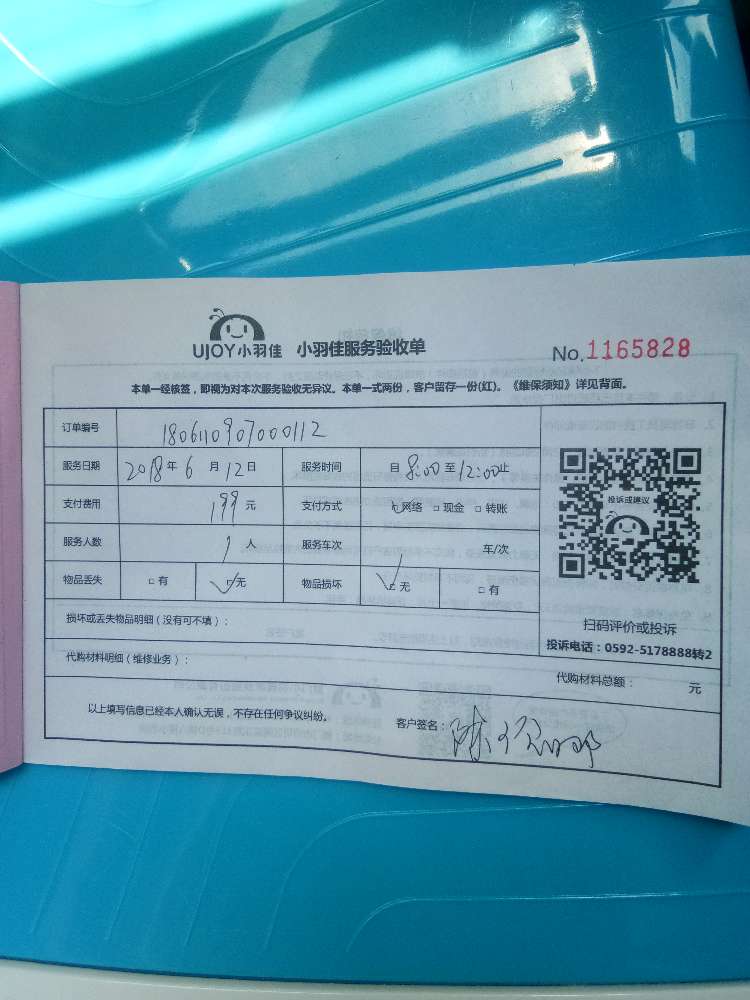 UJOY小羽佳 小羽佳服务验收单 No.1165828
本单一经核签，即视为对本次服务验收无异议。本单一式两份，客户留存一份(红)。《维保须知》详见背面。
订单编号 1806110907000112
服务日期 2018年6月12日 服务时间 自8:00至12:00止
支付费用 199元 支付方式 ☑网络 □现金 □转账
服务人数 1人 服务车次 车/次
物品丢失 □有 ☑无 物品损坏 ☑无 □有
投诉或建议
扫码评价或投诉
投诉电话：0592-5178888转2
损坏或丢失物品明细（没有可不填）：
代购材料明细（维修业务）：
代购材料总额： 元
以上填写信息已经本人确认无误，不存在任何争议纠纷。 客户签名：